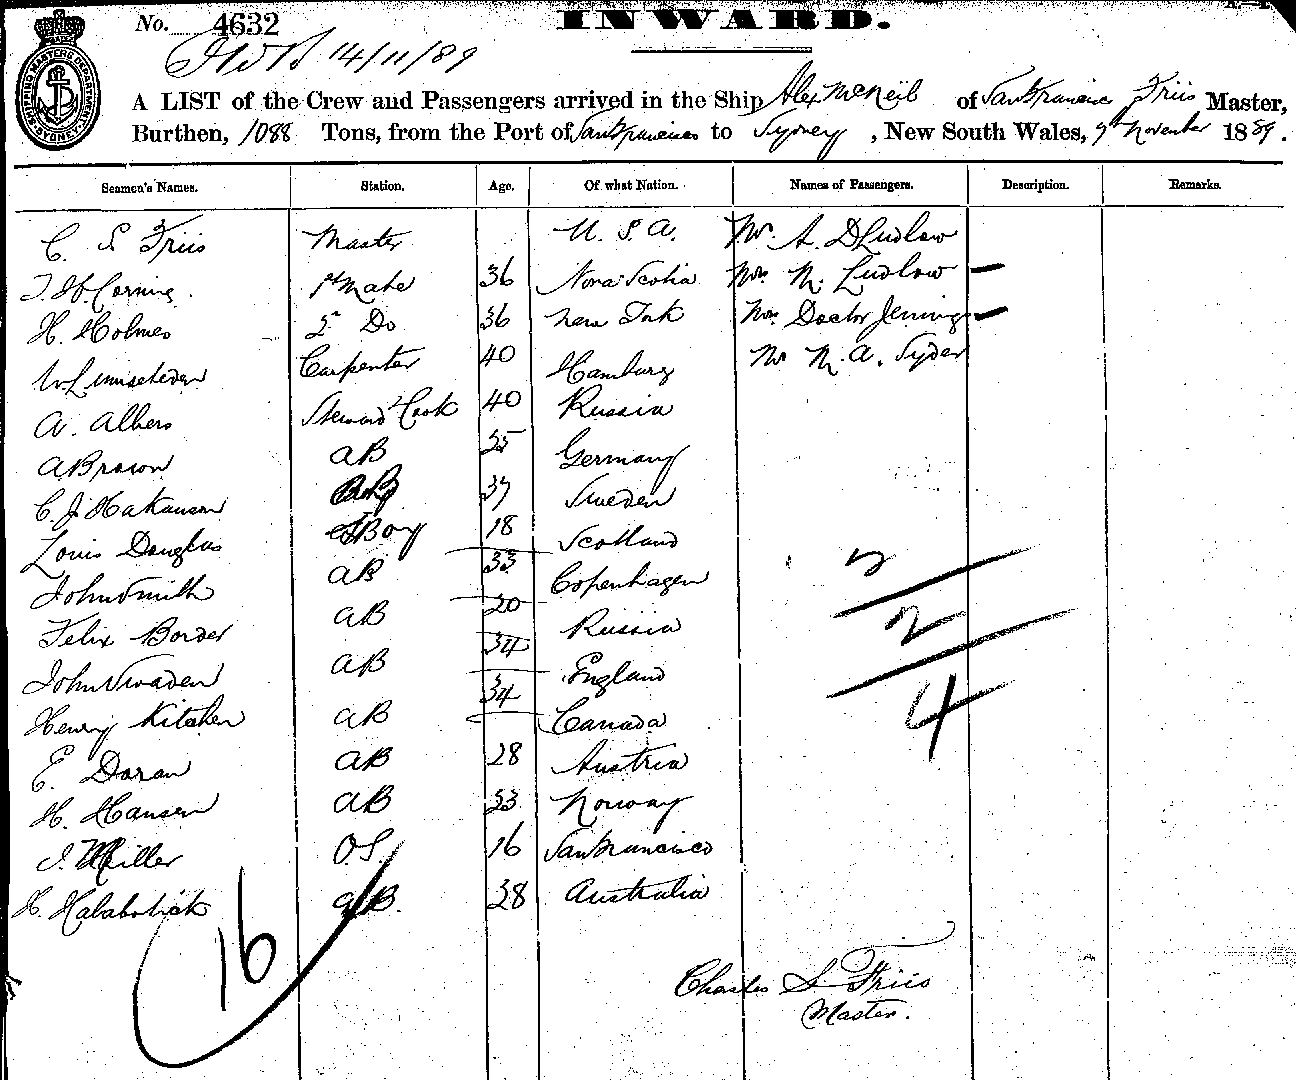 No. 4632 INWARD.
SHIPPING MASTERS DEPARTMENT SYDNEY
14/11/89
A LIST of the Crew and Passengers arrived in the Ship Alex McNeil of San Francisco Friis Master,
Burthen, 1088 Tons, from the Port of San Francisco to Sydney, New South Wales, 9th November 1889.
Seamen's Names. Station. Age. Of what Nation. Names of Passengers. Description. Remarks.
C. S Friis Master U. S. A. Mr. A. D Ludlow
J. H. Corning 1st Mate 36 Nova Scotia Mrs M. Ludlow —
H. Holmes 2nd Do 36 New York Mrs Doctor Jennings —
Carpenter 40 Hamburg Mr M. A. Syder
A. Albers Steward & Cook 40 Russia
A Brown AB 25 Germany
C. J. Hakanson AB 37 Sweden
Louis Douglas Boy 18 Scotland
John Smith AB 33 Copenhagen
Felix Border AB 20 Russia
John Swaden AB 34 England
Henry Kitchen AB 34 Canada
E. Doran AB 28 Austria
H. Hansen AB 23 Norway
J. Miller OS. 16 San Francisco
H. Halabolick AB. 38 Australia
2
2
4
16
Charles S Friis
Master.